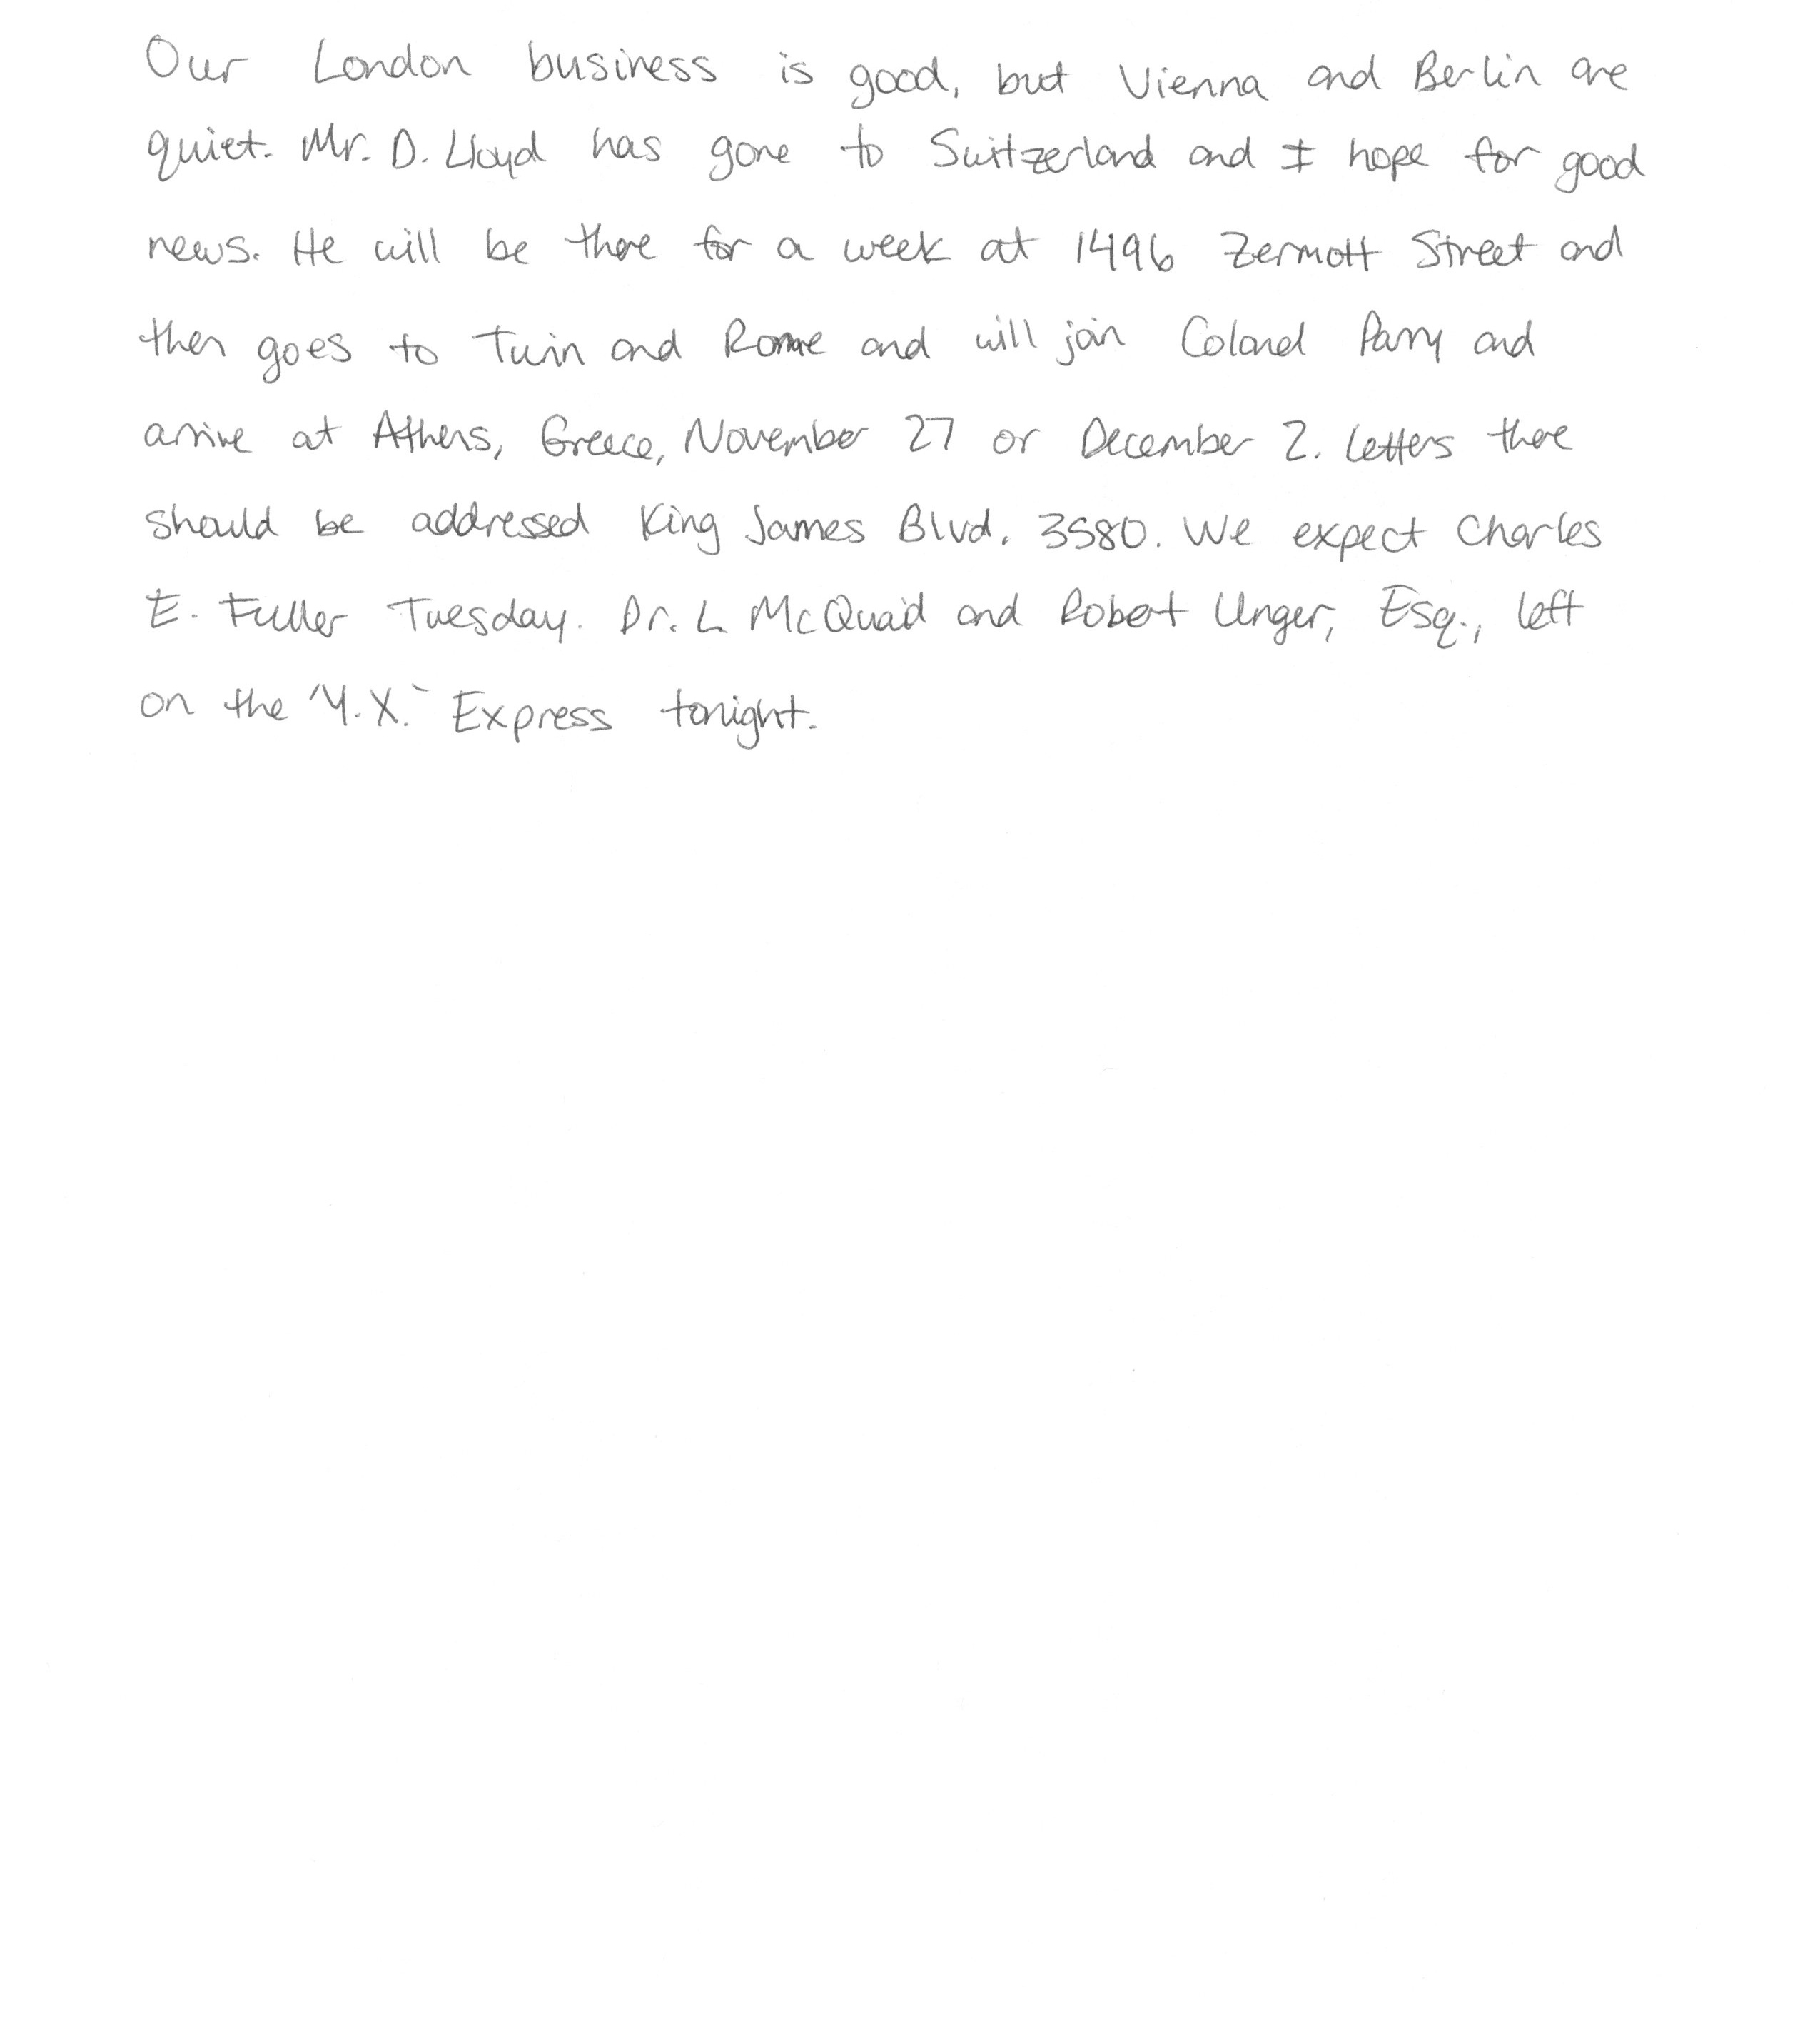 Our London business is good, but Vienna and Berlin are
quiet. Mr. D. Lloyd has gone to Switzerland and I hope for good
news. He will be there for a week at 1496 Zermott Street and
then goes to Turin and Rome and will join Colonel Parry and
arrive at Athens, Greece, November 27 or December 2. Letters there
should be addressed King James Blvd. 3580. We expect Charles
E. Fuller Tuesday. Dr. L McQuaid and Robert Unger, Esq., left
on the "Y.X." Express tonight.